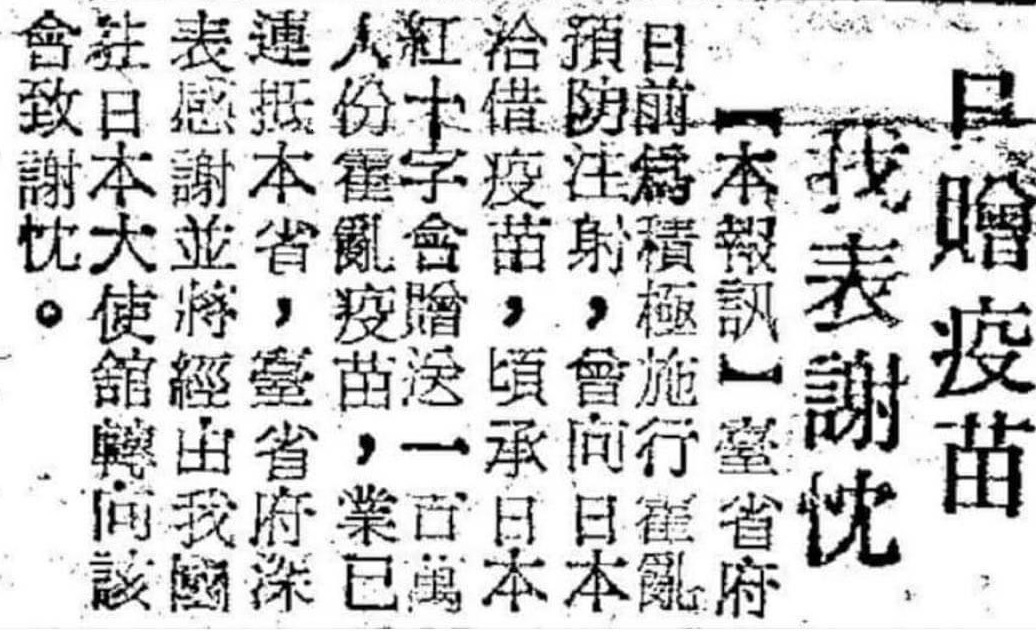 日贈疫苗
我表謝忱
【本報訊】臺省府
日前爲積極施行霍亂
預防注射，曾向日本
洽借疫苗，頃承日本
紅十字會贈送一百萬
人份霍亂疫苗，業已
運抵本省，臺省府深
表感謝並將經由我國
駐日本大使館轉向該
會致謝忱。